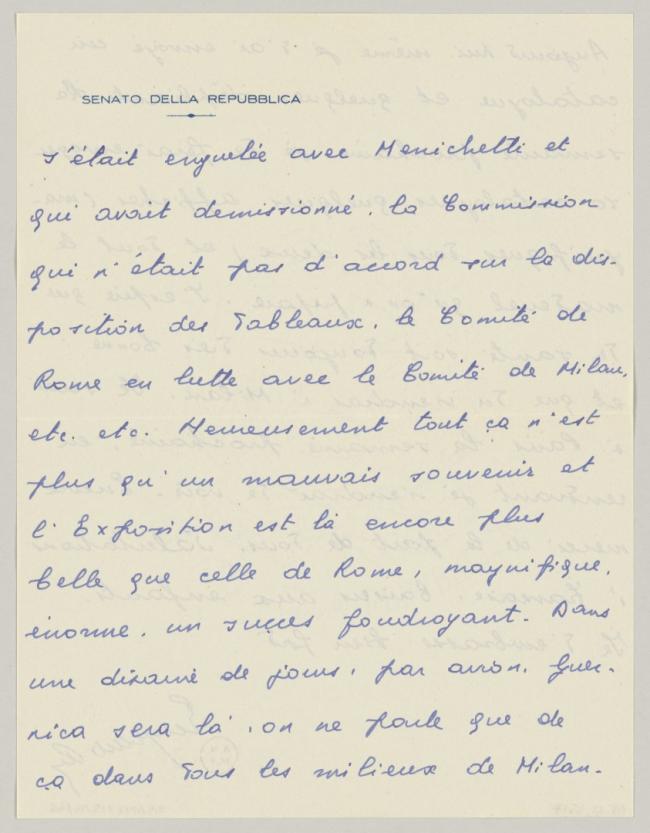 SENATO DELLA REPUBBLICA
s'était enguelée avec Menichetti et
qui avait demissionné. la Commission
qui n'était pas d'accord sur la dis-
position des Tableaux. le Comité de
Rome en lutte avec le Comité de Milan,
etc. etc. Heureusement tout ça n'est
plus qu'un mauvais souvenir et
l'Exposition est là encore plus
belle que celle de Rome, magnifique,
énorme. un succes foudroyant. Dans
une disaine de jours, par avion, Guer-
nica sera là, on ne parle que de
ça dans tous les milieux de Milan.